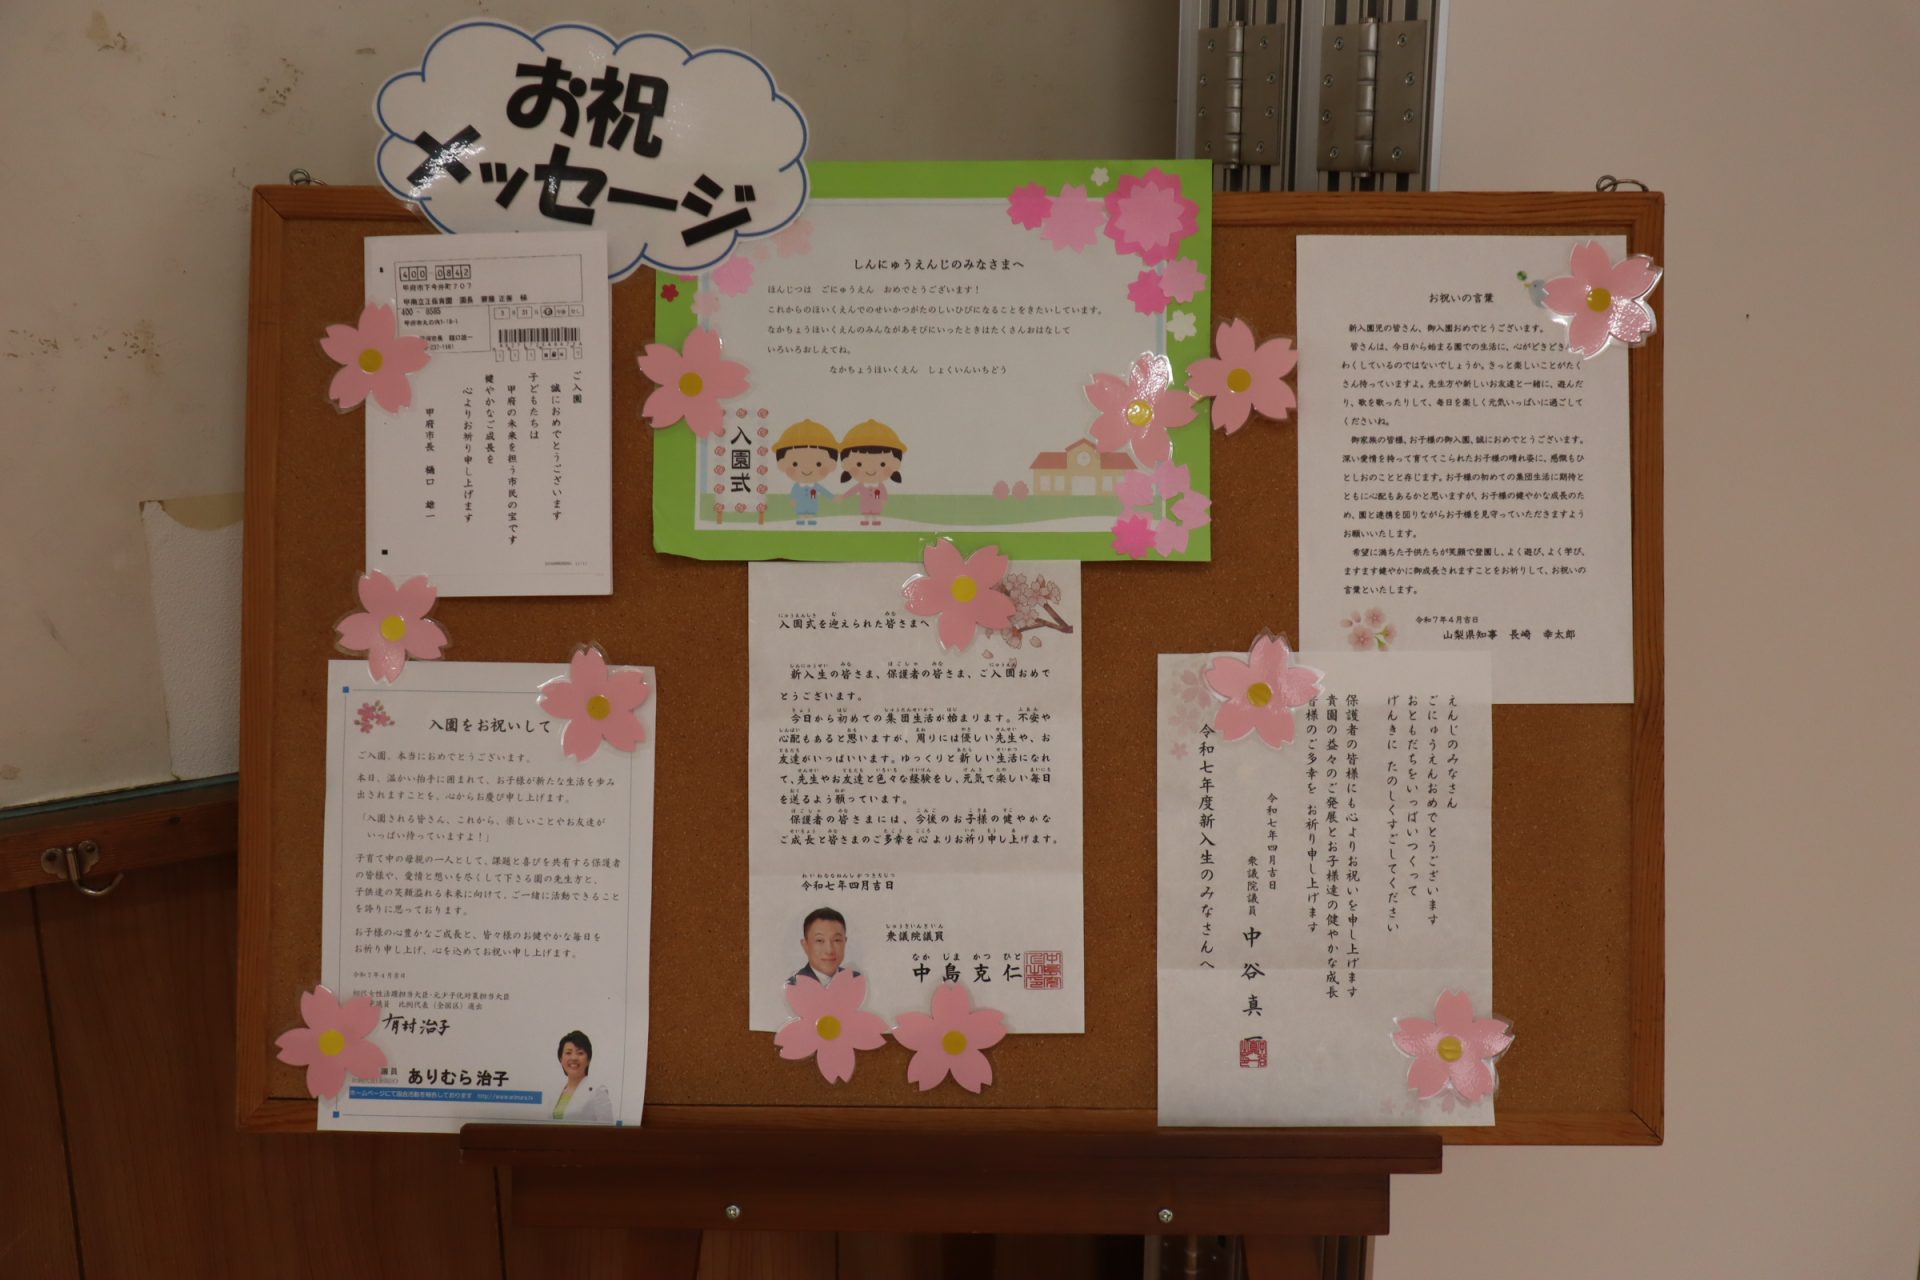 お祝
メッセージ
400-0842
甲府市下今井町707
甲南立正保育園 園長 齋藤 正憲 様
400-8585
甲府市丸の内1-18-1
樋口雄一
237-1161
ご入園
誠におめでとうございます
子どもたちは
甲府の未来を担う市民の宝です
健やかなご成長を
心よりお祈り申し上げます
甲府市長 樋口 雄一
しんにゅうえんじのみなさまへ
ほんじつは ごにゅうえん おめでとうございます!
これからのほいくえんでのせいかつがたのしいひびになることをきたいしています。
なかちょうほいくえんのみんながあそびにいったときはたくさんおはなして
いろいろおしえてね。
なかちょうほいくえん しょくいんいちどう
入園式
お祝いの言葉
新入園児の皆さん、御入園おめでとうございます。
皆さんは、今日から始まる園での生活に、心がどきどき
わくしているのではないでしょうか。きっと楽しいことがたく
さん待っていますよ。先生方や新しいお友達と一緒に、遊んだ
り、歌を歌ったりして、毎日を楽しく元気いっぱいに過ごして
くださいね。
御家族の皆様、お子様の御入園、誠におめでとうございます。
深い愛情を持って育ててこられたお子様の晴れ姿に、感慨もひ
としおのことと存じます。お子様の初めての集団生活に期待と
ともに心配もあるかと思いますが、お子様の健やかな成長のた
め、園と連携を図りながらお子様を見守っていただきますよう
お願いいたします。
希望に満ちた子供たちが笑顔で登園し、よく遊び、よく学び、
ますます健やかに御成長されますことをお祈りして、お祝いの
言葉といたします。
令和7年4月吉日
山梨県知事 長崎 幸太郎
入園をお祝いして
ご入園、本当におめでとうございます。
本日、温かい拍手に囲まれて、お子様が新たな生活を歩み
出されますことを、心からお慶び申し上げます。
「入園される皆さん、これから、楽しいことやお友達が
いっぱい待っていますよ!」
子育て中の母親の一人として、課題と喜びを共有する保護者
の皆様や、愛情と想いを尽くして下さる園の先生方と、
子供達の笑顔溢れる未来に向けて、ご一緒に活動できること
を誇りに思っております。
お子様の心豊かなご成長と、皆々様のお健やかな毎日を
お祈り申し上げ、心を込めてお祝い申し上げます。
令和7年4月吉日
初代女性活躍担当大臣・元少子化対策担当大臣
議員 比例代表(全国区)選出
有村治子
議員 ありむら治子
ホームページにて現在活動を報告しております http://www.arimura.tv
入園式を迎えられた皆さまへ
新入生の皆さま、保護者の皆さま、ご入園おめで
とうございます。
今日から初めての集団生活が始まります。不安や
心配もあると思いますが、周りには優しい先生や、お
友達がいっぱいいます。ゆっくりと新しい生活になれ
て、先生やお友達と色々な経験をし、元気で楽しい毎日
を送るよう願っています。
保護者の皆さまには、今後のお子様の健やかな
ご成長と皆さまのご多幸を心よりお祈り申し上げます。
令和七年四月吉日
衆議院議員
中島克仁
えんじのみなさん
ごにゅうえんおめでとうございます
おともだちをいっぱいつくって
げんきに たのしくすごしてください
保護者の皆様にも心よりお祝いを申し上げます
貴園の益々のご発展とお子様達の健やかな成長
皆様のご多幸を お祈り申し上げます
令和七年四月吉日
衆議院議員 中谷真一
令和七年度新入生のみなさんへ